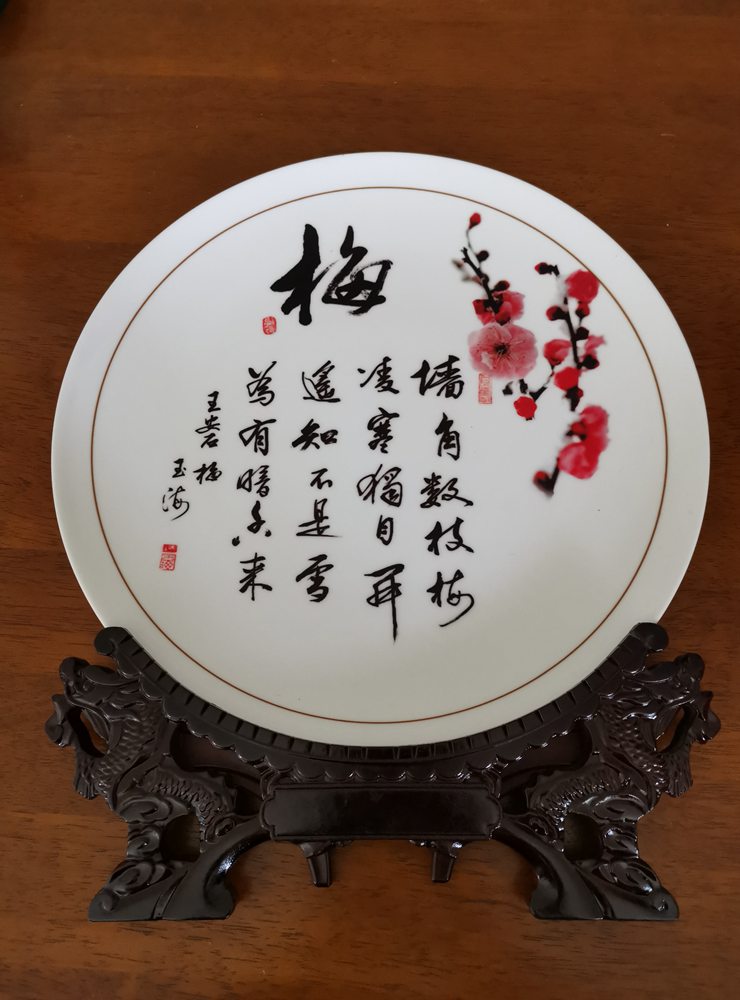 梅
墙角数枝梅
凌寒獨自开
遥知不是雪
为有暗香来
王安石梅
玉海